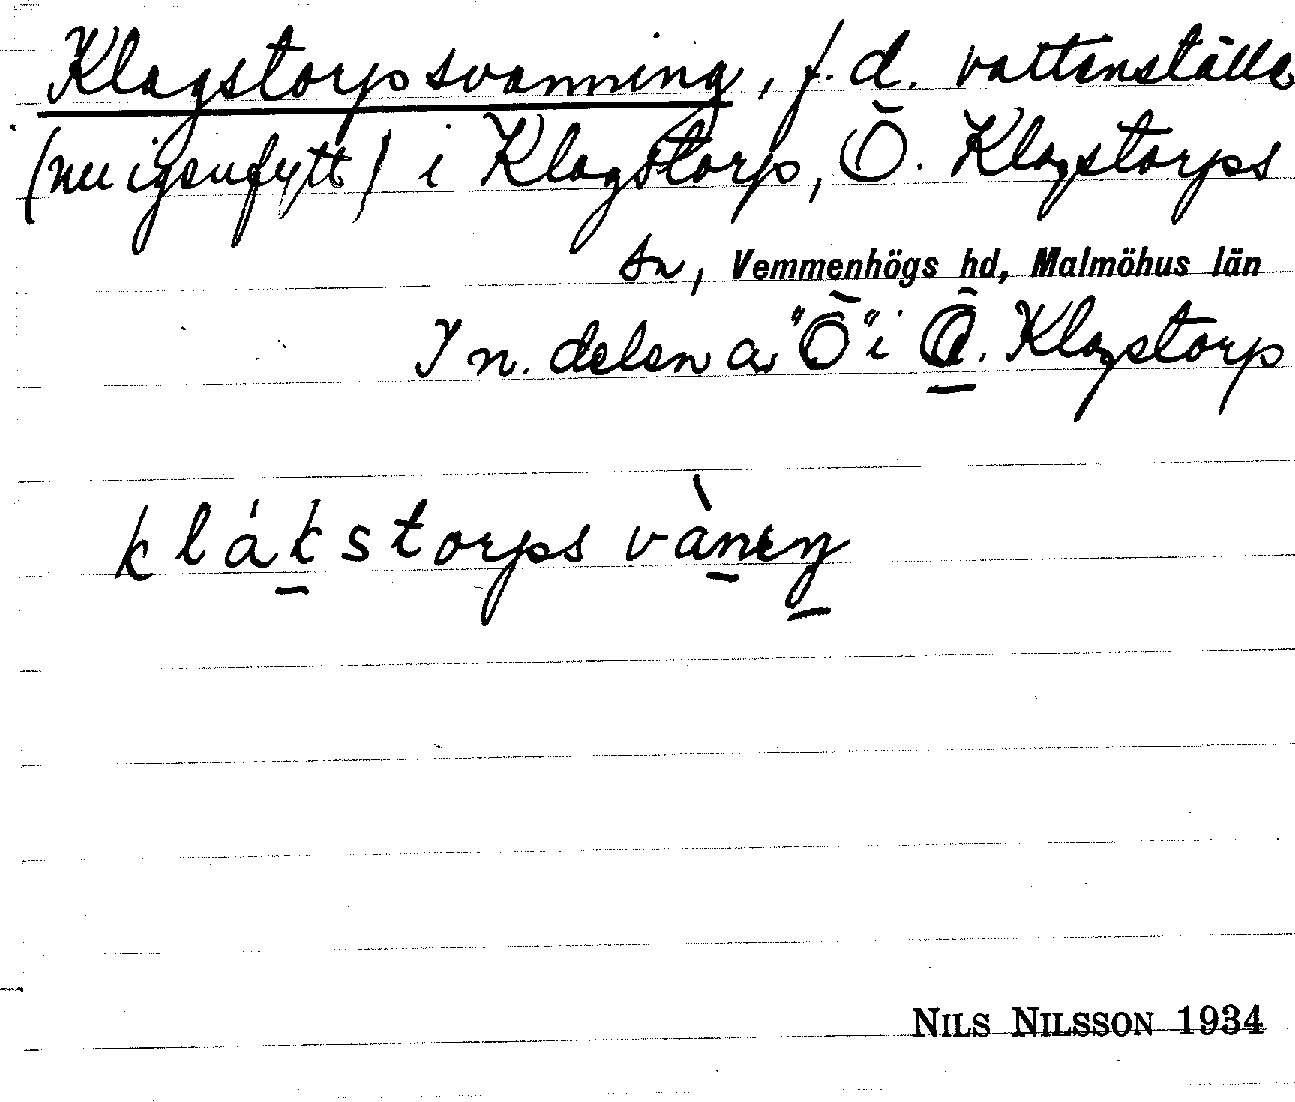 Klagstorpsvanning, f.d. vattenställe
(nu igenfyllt) i Klagstorp, Ö. Klagstorps
sn, Vemmenhögs hd, Malmöhus län
I n. delen av "Ö" i Ö. Klagstorp
klákstorps vàneŋ
NILS NILSSON 1934